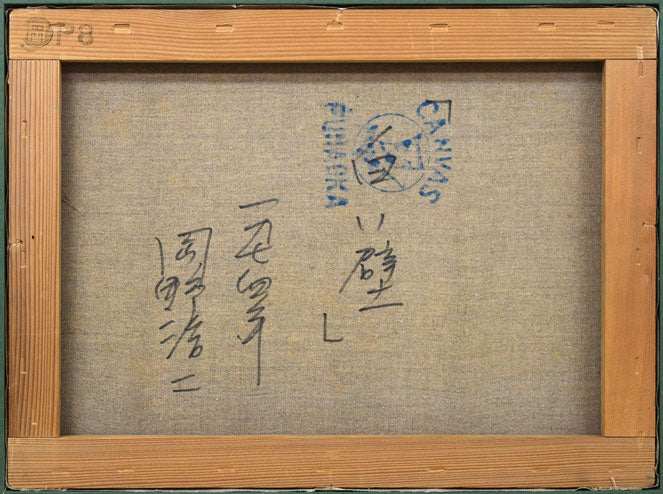 P8
CANVAS
FUNAOKA
「白い壁」
一九七四年
岡野浩二